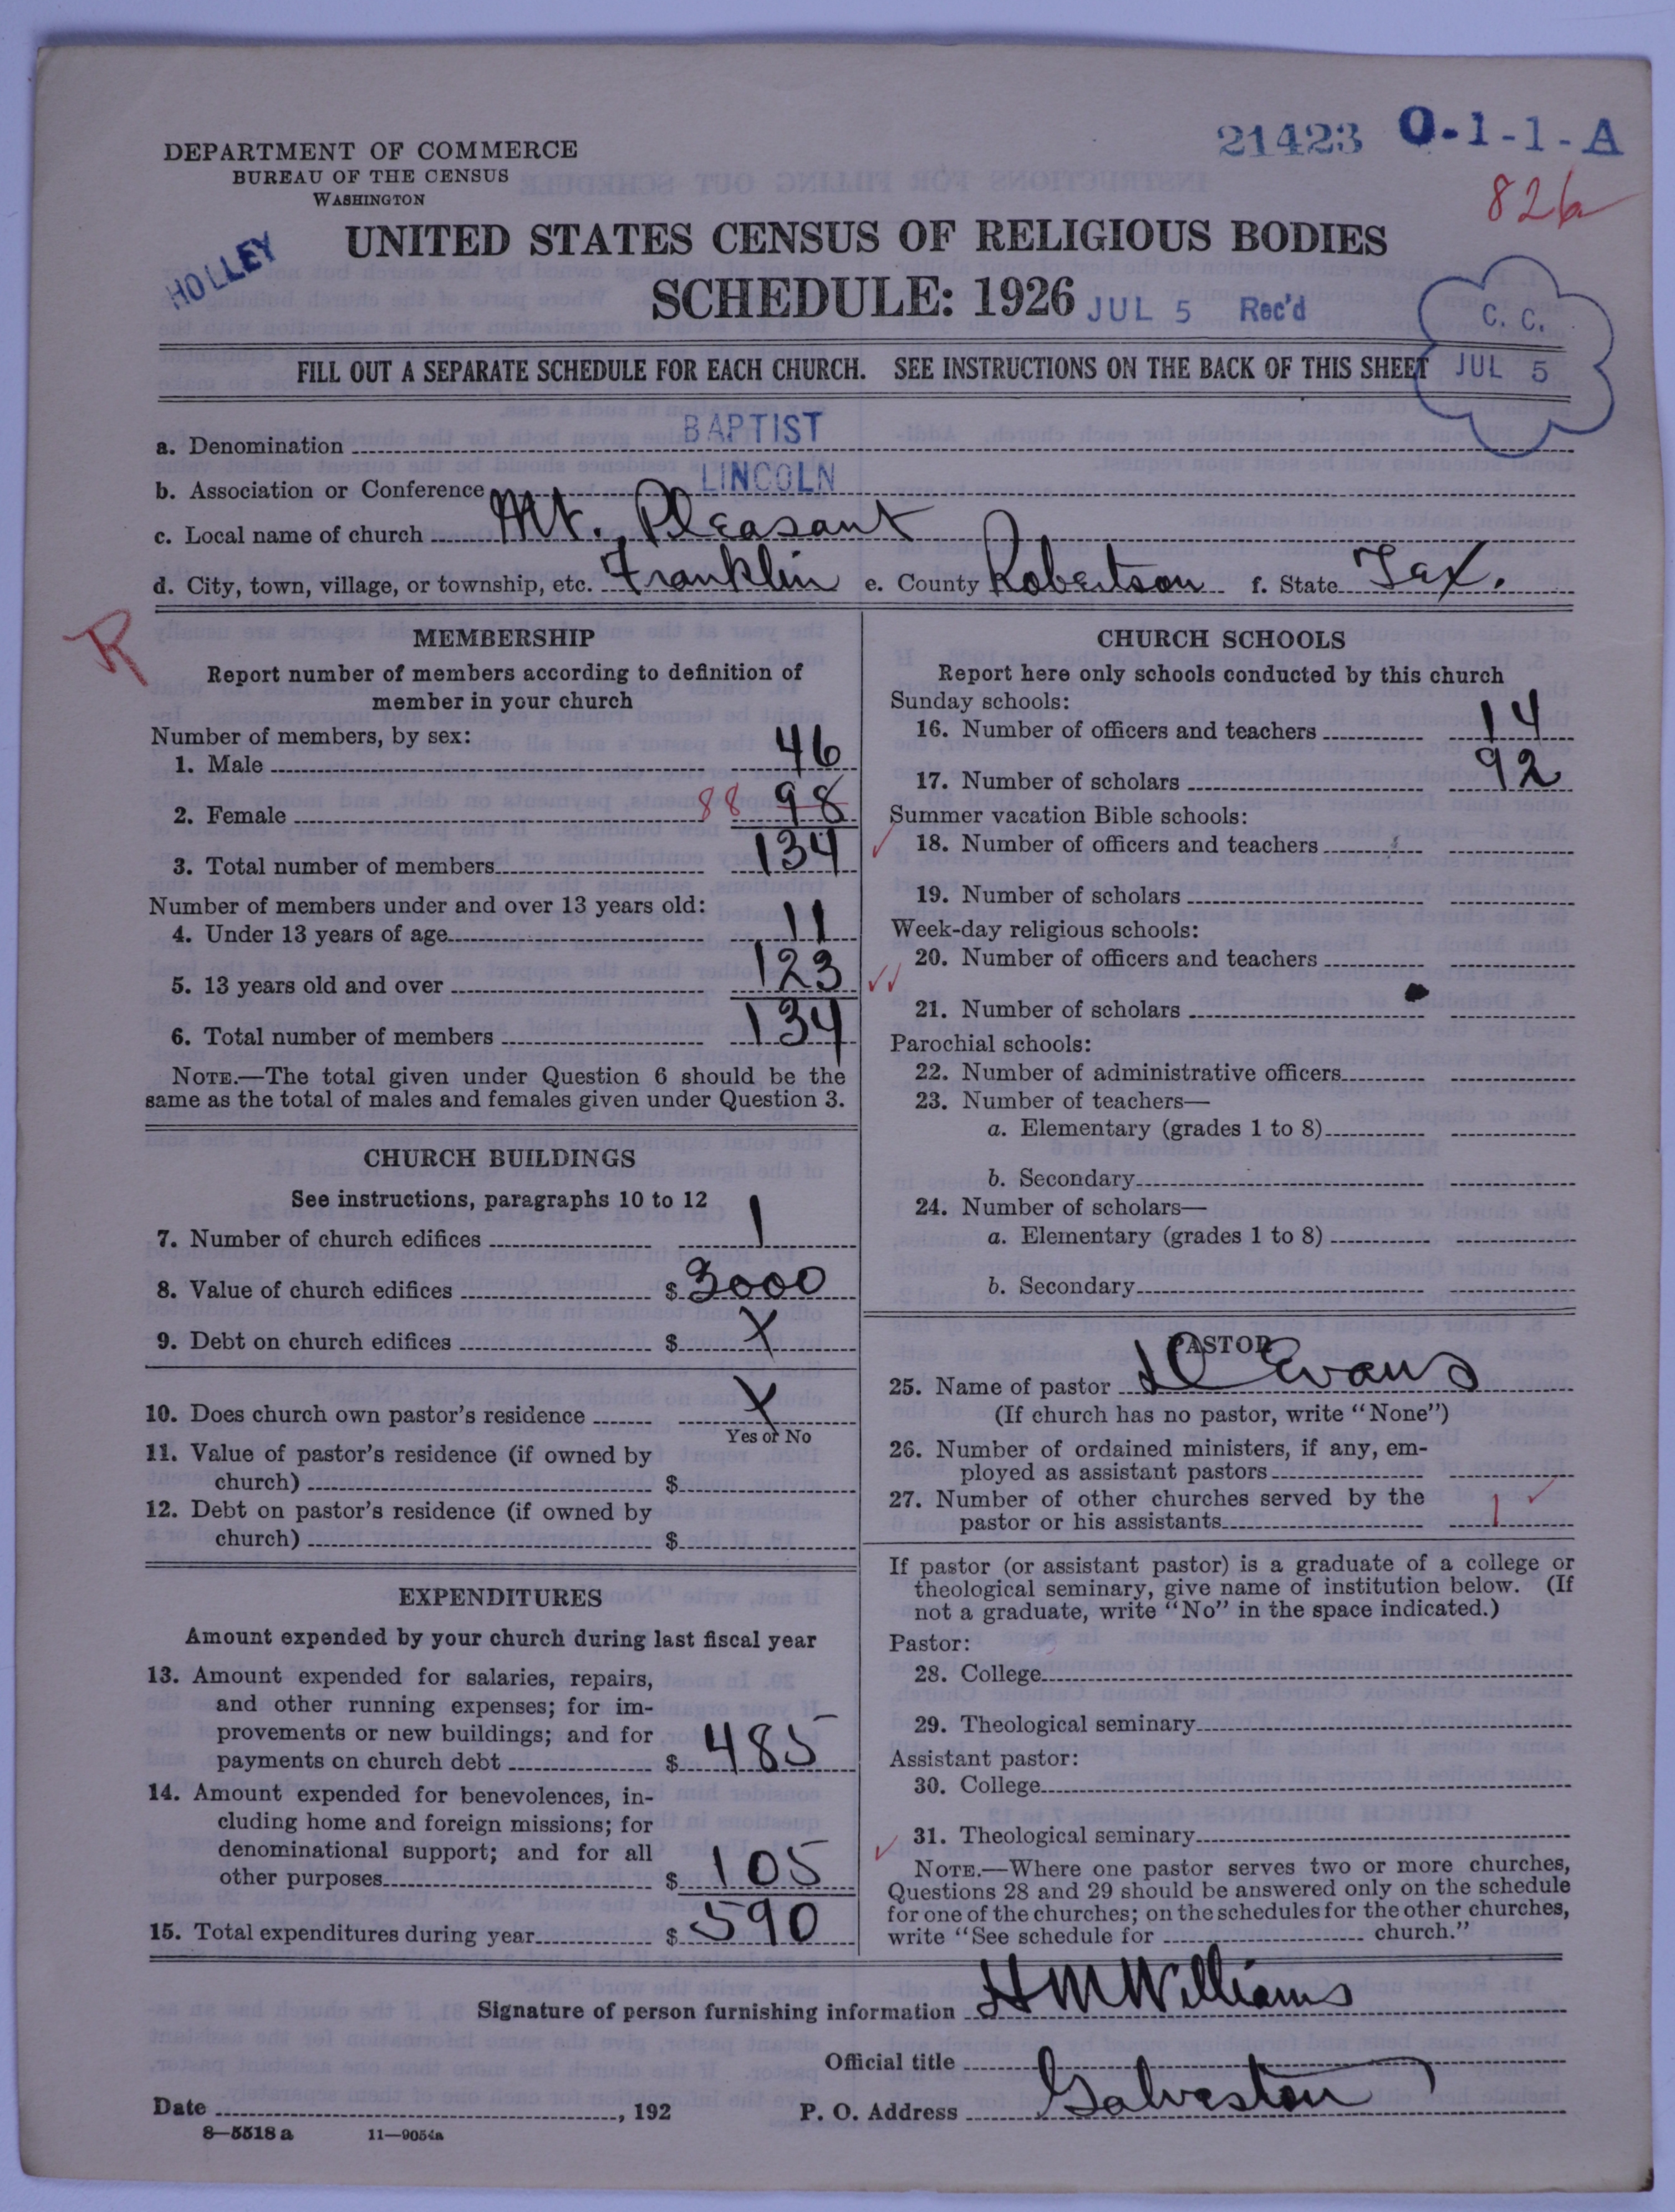 21423 O-1-1-A
DEPARTMENT OF COMMERCE
BUREAU OF THE CENSUS
WASHINGTON
826
HOLLEY
UNITED STATES CENSUS OF RELIGIOUS BODIES
SCHEDULE: 1926 JUL 5 Rec'd
C. C.
JUL 5
FILL OUT A SEPARATE SCHEDULE FOR EACH CHURCH. SEE INSTRUCTIONS ON THE BACK OF THIS SHEET
a. Denomination BAPTIST
b. Association or Conference LINCOLN
c. Local name of church Mt. Pleasant
d. City, town, village, or township, etc. Franklin e. County Robertson f. State Tex.
R
MEMBERSHIP
Report number of members according to definition of
member in your church
Number of members, by sex:
1. Male 46
2. Female 88 98
3. Total number of members 134
Number of members under and over 13 years old:
4. Under 13 years of age 11
5. 13 years old and over 123
6. Total number of members 134
NOTE.—The total given under Question 6 should be the
same as the total of males and females given under Question 3.
CHURCH BUILDINGS
See instructions, paragraphs 10 to 12
7. Number of church edifices 1
8. Value of church edifices $ 3000
9. Debt on church edifices $ X
10. Does church own pastor's residence X
Yes or No
11. Value of pastor's residence (if owned by
church) $
12. Debt on pastor's residence (if owned by
church) $
EXPENDITURES
Amount expended by your church during last fiscal year
13. Amount expended for salaries, repairs,
and other running expenses; for im-
provements or new buildings; and for
payments on church debt $ 485
14. Amount expended for benevolences, in-
cluding home and foreign missions; for
denominational support; and for all
other purposes $ 105
15. Total expenditures during year $ 590
CHURCH SCHOOLS
Report here only schools conducted by this church
Sunday schools:
16. Number of officers and teachers 14
17. Number of scholars 92
Summer vacation Bible schools:
18. Number of officers and teachers
19. Number of scholars
Week-day religious schools:
20. Number of officers and teachers
21. Number of scholars
Parochial schools:
22. Number of administrative officers
23. Number of teachers—
a. Elementary (grades 1 to 8)
b. Secondary
24. Number of scholars—
a. Elementary (grades 1 to 8)
b. Secondary
PASTOR
25. Name of pastor Evans
(If church has no pastor, write "None")
26. Number of ordained ministers, if any, em-
ployed as assistant pastors
27. Number of other churches served by the
pastor or his assistants 1
If pastor (or assistant pastor) is a graduate of a college or
theological seminary, give name of institution below. (If
not a graduate, write "No" in the space indicated.)
Pastor:
28. College
29. Theological seminary
Assistant pastor:
30. College
31. Theological seminary
NOTE.—Where one pastor serves two or more churches,
Questions 28 and 29 should be answered only on the schedule
for one of the churches; on the schedules for the other churches,
write "See schedule for church."
Signature of person furnishing information H M Williams
Official title
Date , 192 P. O. Address Galveston
8—5518 a 11—9054a